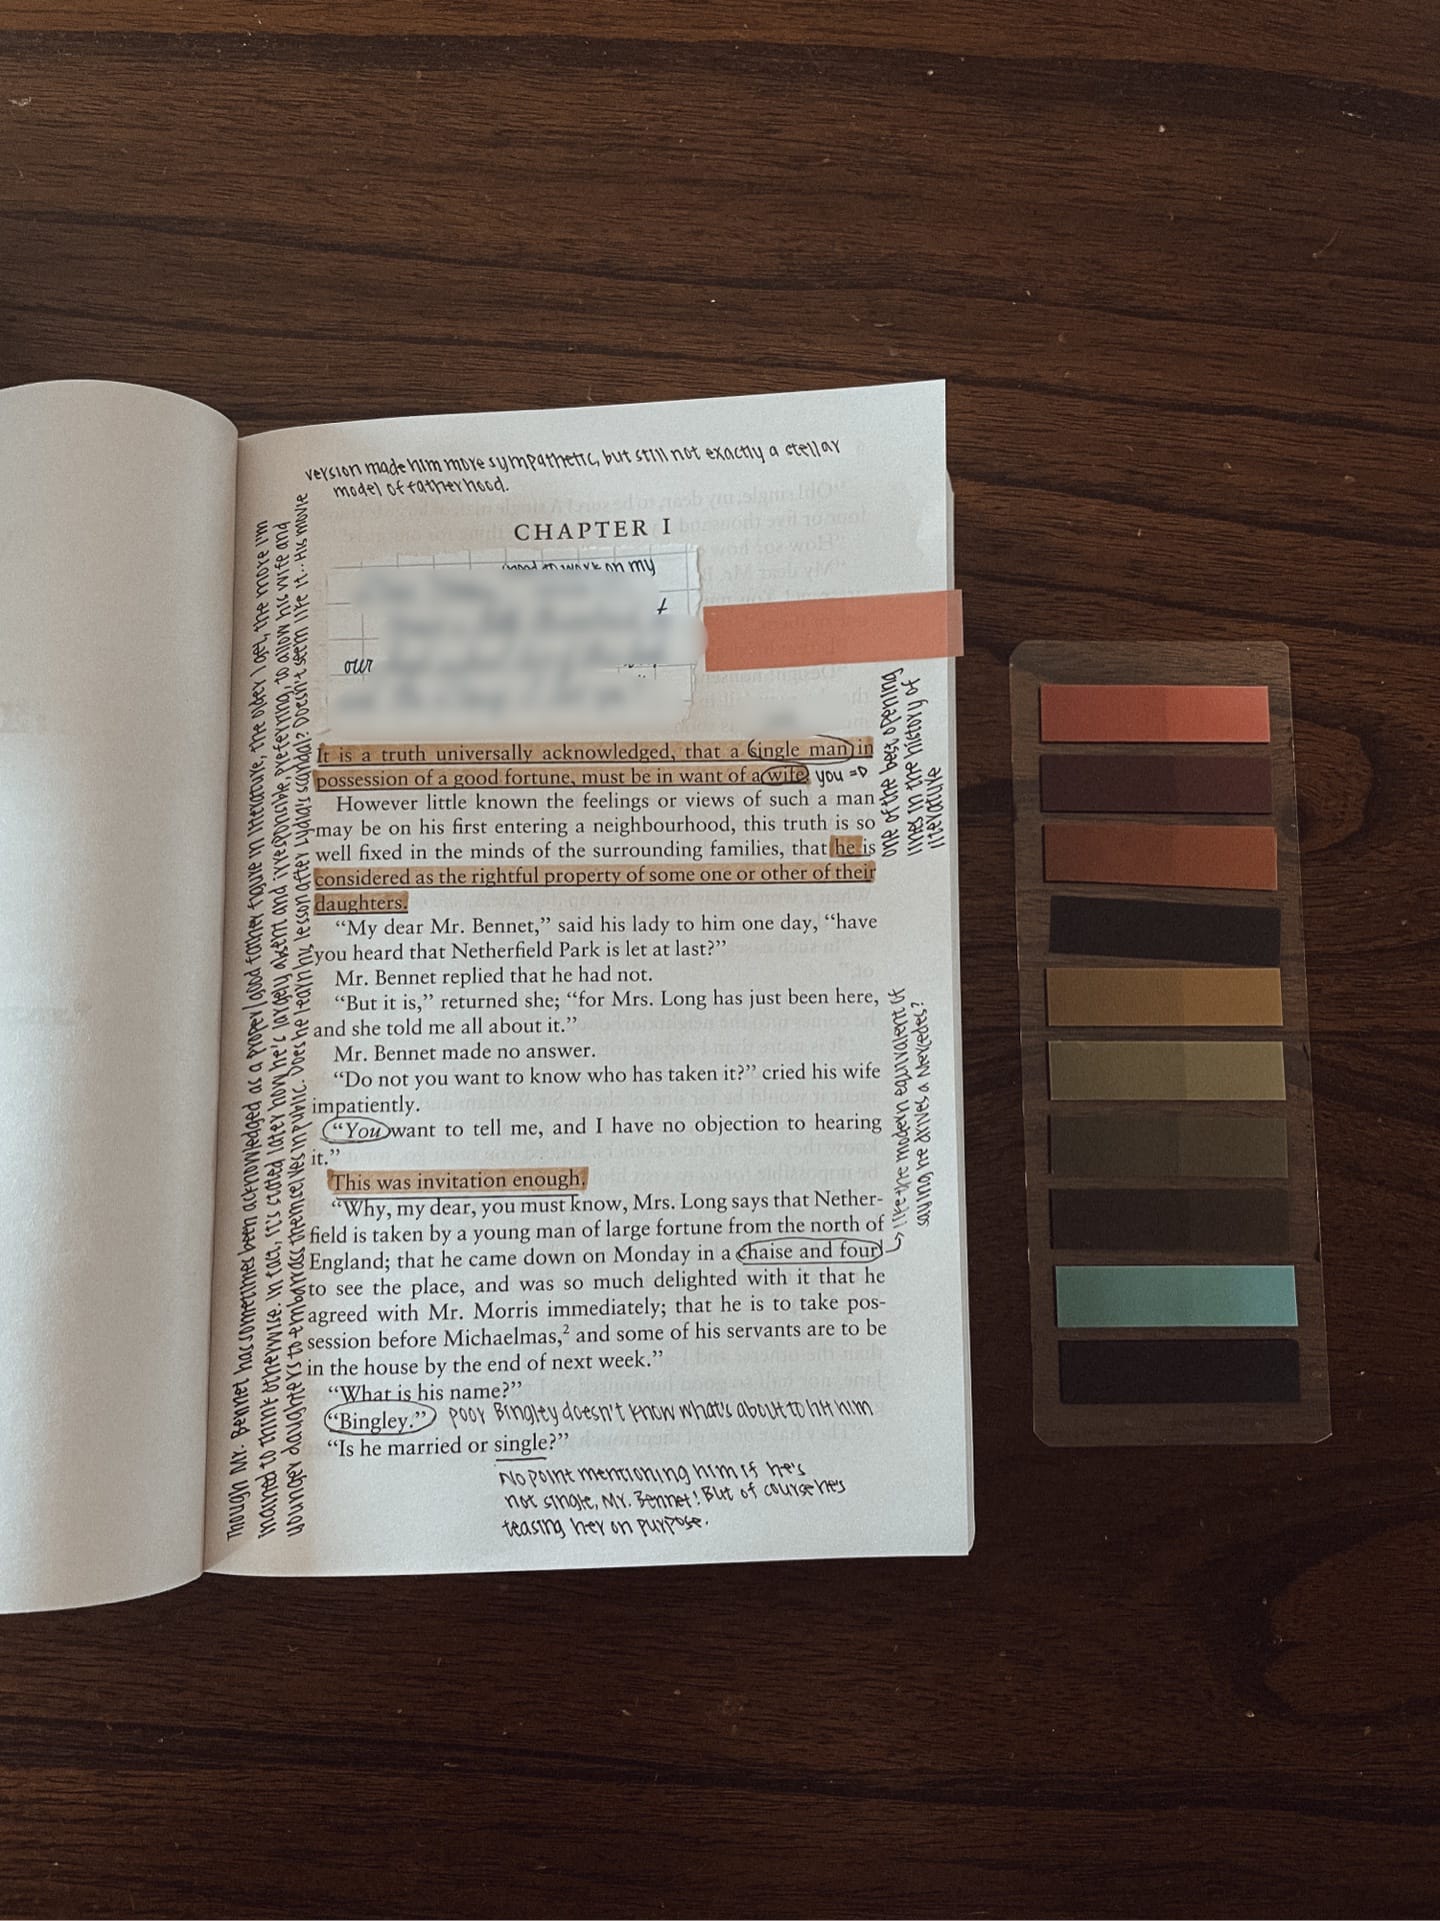 Though Mr. Bennet has sometimes been acknowledged as a proper/good father figure in literature, the older I get, the more I'm
inclined to think otherwise. In fact, it's stated later how he's largely absent and irresponsible, preferring, to allow his wife and
younger daughters to embarrass themselves in public. Does he learn his lesson after Lydia's scandal? Doesn't seem like it.. His movie
version made him more sympathetic, but still not exactly a stellar
model of fatherhood.
CHAPTER I
need to work on my
our
It is a truth universally acknowledged, that a single man in
possession of a good fortune, must be in want of a wife. you =D
one of the best opening
lines in the history of
literature
However little known the feelings or views of such a man
may be on his first entering a neighbourhood, this truth is so
well fixed in the minds of the surrounding families, that he is
considered as the rightful property of some one or other of their
daughters.
“My dear Mr. Bennet,” said his lady to him one day, “have
you heard that Netherfield Park is let at last?”
Mr. Bennet replied that he had not.
“But it is,” returned she; “for Mrs. Long has just been here,
and she told me all about it.”
Mr. Bennet made no answer.
“Do not you want to know who has taken it?” cried his wife
impatiently.
“You want to tell me, and I have no objection to hearing
it.”
This was invitation enough.
“Why, my dear, you must know, Mrs. Long says that Nether-
field is taken by a young man of large fortune from the north of
England; that he came down on Monday in a chaise and four
like the modern equivalent of
saying he drives a Mercedes?
to see the place, and was so much delighted with it that he
agreed with Mr. Morris immediately; that he is to take pos-
session before Michaelmas,² and some of his servants are to be
in the house by the end of next week.”
“What is his name?”
“Bingley.” poor Bingley doesn't know what's about to hit him
“Is he married or single?”
No point mentioning him if he's
not single, Mr. Bennet! But of course he's
teasing her on purpose.